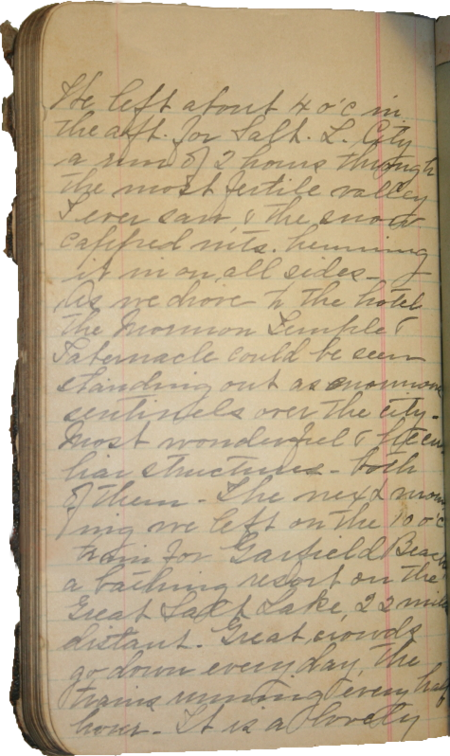 We left about 4 o'c in
the aft. for Salt. L. City
a run of 2 hours through
the most fertile valley
I ever saw, & the snow
capped mts. hemming
it in on all sides -
As we drove to the hotel
the Mormon Temple &
Tabernacle could be seen
standing out as enormous
sentinels over the city -
Most wonderful & pecu-
liar structures - both
of them - The next mor
ning we left on the 10 o'c
train for Garfield Beach
a bathing resort on the
Great Salt Lake, 22 miles
distant. Great crowds
go down every day, the
trains running every half
hour - It is a lovely